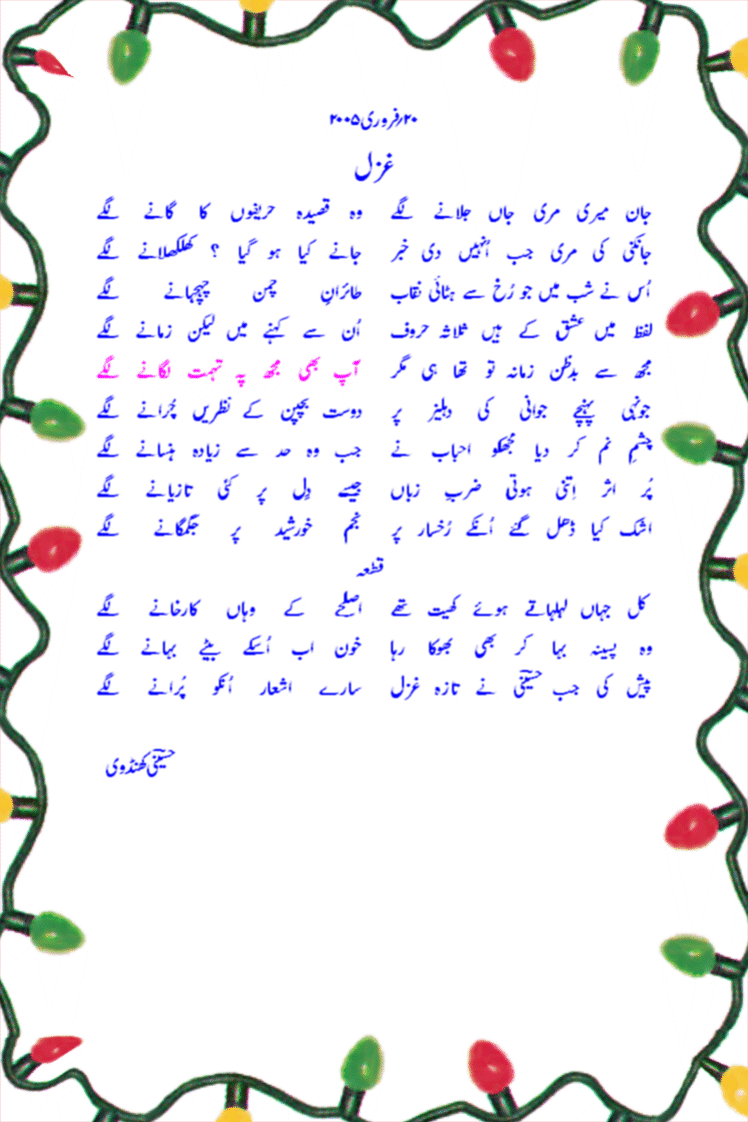 ۲۰؍فروری ۲۰۰۵
غزل
جان میری مری جاں جلانے لگے وہ قصیدہ حریفوں کا گانے لگے
جانکنی کی مری جب اُنہیں دی خبر جانے کیا ہو گیا ؟ کھلکھلانے لگے
اُس نے شب میں جو رُخ سے ہٹائی نقاب طائرانِ چمن چہچہانے لگے
لفظ میں عشق کے ہیں ثلاثہ حروف اُن سے کہنے میں لیکن زمانے لگے
مجھ سے بدظن زمانہ تو تھا ہی مگر آپ بھی مجھ پہ تہمت لگانے لگے
جونہی پہنچے جوانی کی دہلیز پر دوست بچپن کے نظریں چُرانے لگے
چشمِ نم کر دیا مجھکو احباب نے جب وہ حد سے زیادہ ہنسانے لگے
پُر اثر اِتنی ہوتی ضربِ زباں جیسے دِل پر کئی تازیانے لگے
اشک کیا ڈھل گئے اُنکے رُخسار پر نجم خورشید پر جگمگانے لگے
قطعہ
کل جہاں لہلہاتے ہوئے کھیت تھے اصلحے کے وہاں کارخانے لگے
وہ پسینہ بہا کر بھی بھوکا رہا خون اب اُسکے بیٹے بہانے لگے
پیش کی جب حسینؔی نے تازہ غزل سارے اشعار اُنکو پُرانے لگے
حسینؔی کھنڈوی